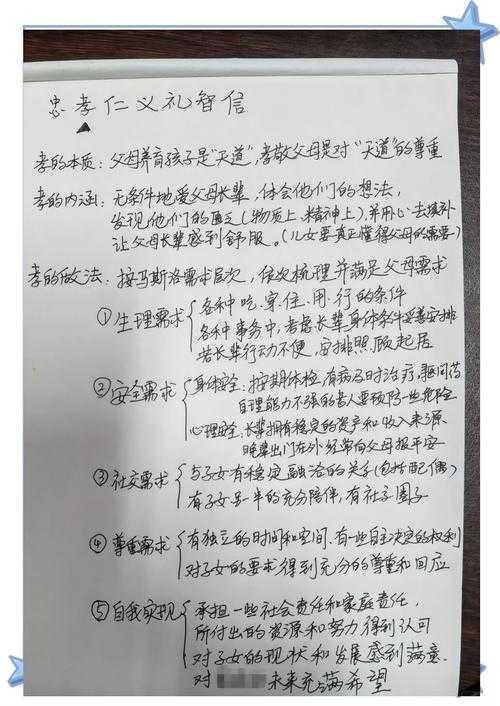 忠孝仁义礼智信
孝的本质：父母养育孩子是“天道”，孝敬父母是对“天道”的尊重
孝的内涵：无条件地爱父母长辈，体会他们的想法，
发现他们的匮乏(物质上、精神上)，并用心去填补
让父母长辈感到舒服。(儿女要真正懂得父母的需要)
孝的做法：按马斯洛需求层次，依次梳理并满足父母需求
①生理需求
各种吃、穿、住、用、行的条件
各种事务中，考虑长辈身体条件妥善安排
若长辈行动不便，安排照顾起居
②安全需求
身体安全：按期体检，有病及时治疗，驱问药
自理能力不强的老人要预防一些危险
心理安全：长辈拥有稳定的资产和收入来源
晚辈出门在外经常向父母报平安
③社交需求
与子女有稳定融洽的关系(包括配偶)
有子女另一半的充分陪伴，有社交圈子
④尊重需求
有独立的时间和空间、有一些自主决定的权利
对子女的要求得到充分的尊重和回应
⑤自我实现
承担一些社会责任和家庭责任，
所付出的资源和努力得到认可
对子女的现状和发展感到满意
对 未来充满希望